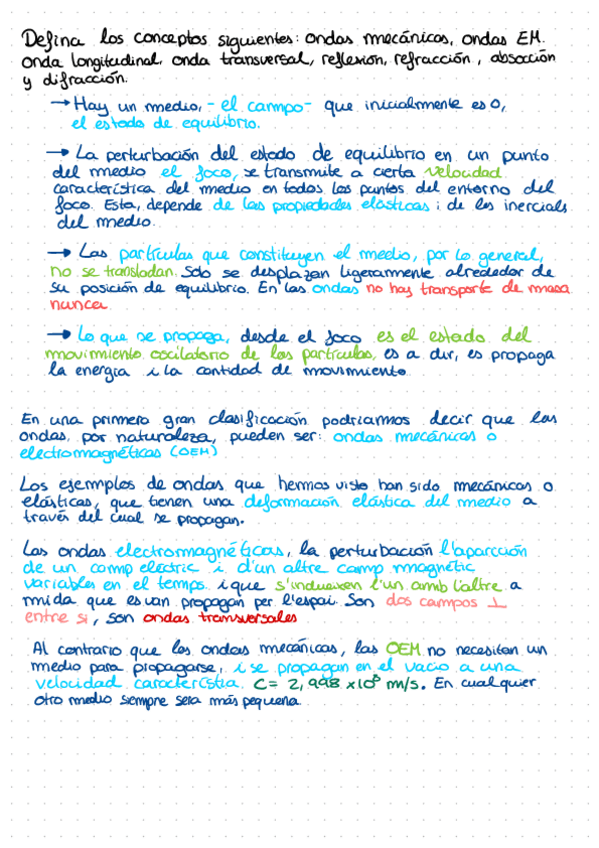 Defina los conceptos siguientes: ondas mecánicas, ondas EM.
onda longitudinal, onda transversal, reflexión, refracción, absocción
y difracción.
→ Hay un medio, - el campo - que inicialmente es 0,
el estado de equilibrio.
→ La perturbación del estado de equilibrio en un punto
del medio el foco, se transmite a cierta velocidad
característica del medio en todos los puntos del entorno del
foco. Esta, depende de las propiedades elásticas i de les inercials
del medio.
→ Las partículas que constituyen el medio, por lo general,
no se transladan. Solo se desplazan ligeramente alrededor de
su posición de equilibrio. En las ondas no hay transporte de masa
nunca
→ Lo que se propaga, desde el foco es el estado del
movimiento oscilatorio de las partículas, es a dir, es propaga
la energia i la cantidad de movimiento
En una primera gran clasificación podríamos decir que las
ondas, por naturaleza, pueden ser: ondas mecánicas o
electromagnéticas (OEM)
Los ejemplos de ondas que hemos visto han sido mecánicas o
elásticas, que tienen una deformación elástica del medio a
través del cual se propagan.
Las ondas electromagnéticas, la perturbación l'aparcción
de un camp electric i d'un altre camp magnètic
variables en el temps i que s'indueixen l'un amb l'altre a
mida que es van propagan per l'espai. Son dos campos ⊥
entre si, son ondas transversales
Al contrario que las ondas mecánicas, las OEM no necesitan un
medio para propagarse, i se propagan en el vacio a una
velocidad característia C= 2,998 x10⁸ m/s. En cualquier
otro medio siempre sera más pequeña